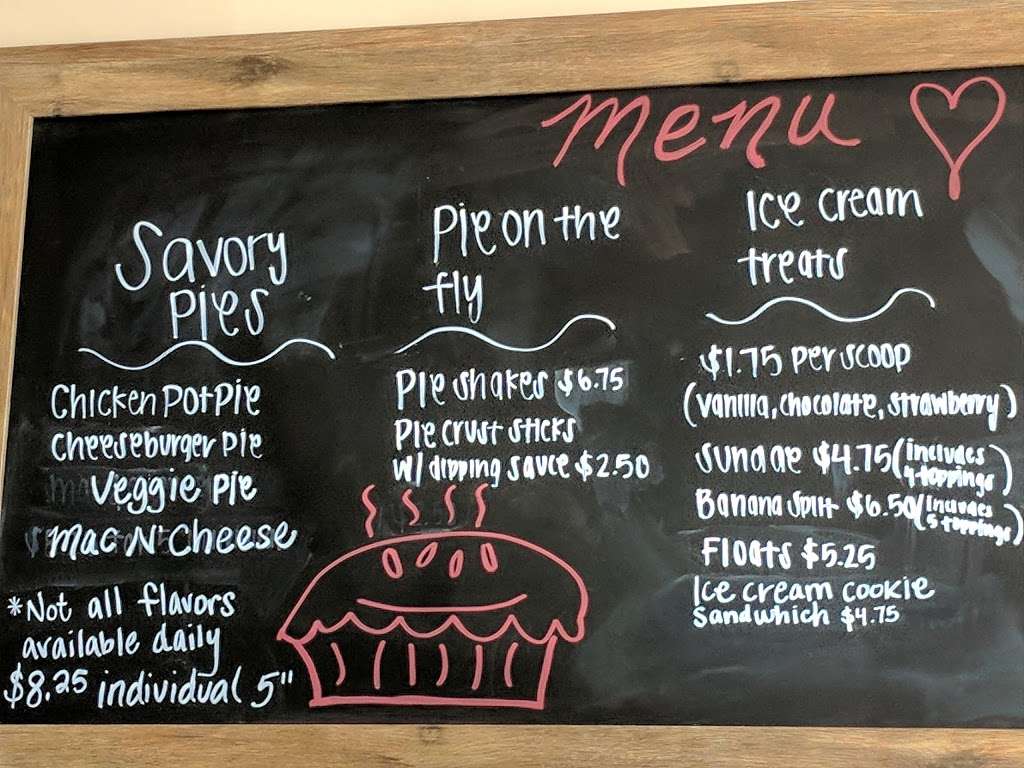 menu
Savory
Pies
Chicken Pot Pie
Cheeseburger Pie
Veggie Pie
Mac N' Cheese
*Not all flavors
available daily
$8.25 individual 5"
Pie on the
fly
Pie shakes $6.75
Pie crust sticks
w/ dipping sauce $2.50
Ice cream
treats
$1.75 per scoop
(vanilla, chocolate, strawberry)
sundae $4.75 (includes
4 toppings)
Banana split $6.50 (includes
5 toppings)
Floats $5.25
Ice cream cookie
sandwhich $4.75